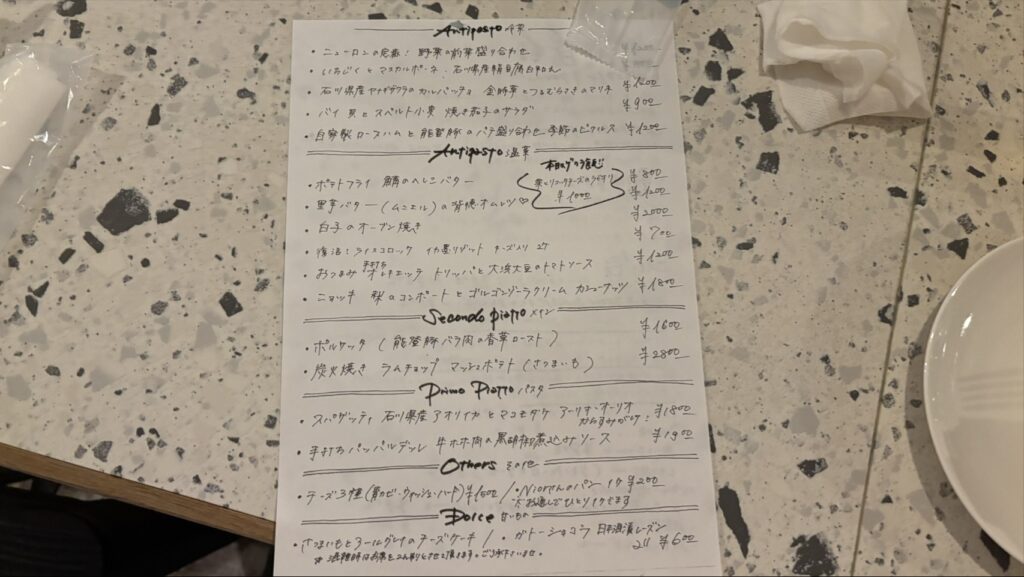 Antipasto 冷菜
・ニューロンの定番! 野菜の前菜盛り合わせ
・いちじくとマスカルポーネ 石川県産 白和え
・石川県産 のカルパッチョ 金時草とつるむらさきのマリネ ¥1200
・バイ貝とスペルト小麦 焼き茄子のサラダ ¥900
・自家製ロースハムと能登豚のパテ盛り合わせ 季節のピクルス ¥1200
Antipasto 温菜
本日の
¥1000
・ポテトフライ 鯖のへしこバター ¥800
・黒亭バター(ムニエル)の オムレツ♡ ¥1200
・白子のオーブン焼き ¥2000
・復活!ライスコロッケ イカ墨リゾット チーズ入り 2ケ ¥700
・おつまみ 手打ち オレキエッテ トリッパと大浜大豆のトマトソース ¥1200
・ニョッキ 梨のコンポートとゴルゴンゾーラクリーム カシューナッツ ¥1800
Secondo piatto メイン
・ポルケッタ (能登豚バラ肉の香草ロースト) ¥1600
・炭火焼き ラムチョップ マッシュポテト(さつまいも) ¥2800
Primo Piatto パスタ
・スパゲッティ 石川県産アオリイカとマコモダケ アーリオ・オーリオ ¥1800
カラスミがけ
・手打ちパッパルデッレ 牛ホホ肉の黒胡椒煮込みソース ¥1900
Others その他
・チーズ3種(青カビ・ウォッシュ・ハード) ¥1600 / ・Niornのパン 1ケ ¥200
※お通しでひとり1ケでます
Dolce 甘いもの
・さつまいもとアールグレイのチーズケーキ / ・ガトーショコラ 日本酒漬レーズン
¥600